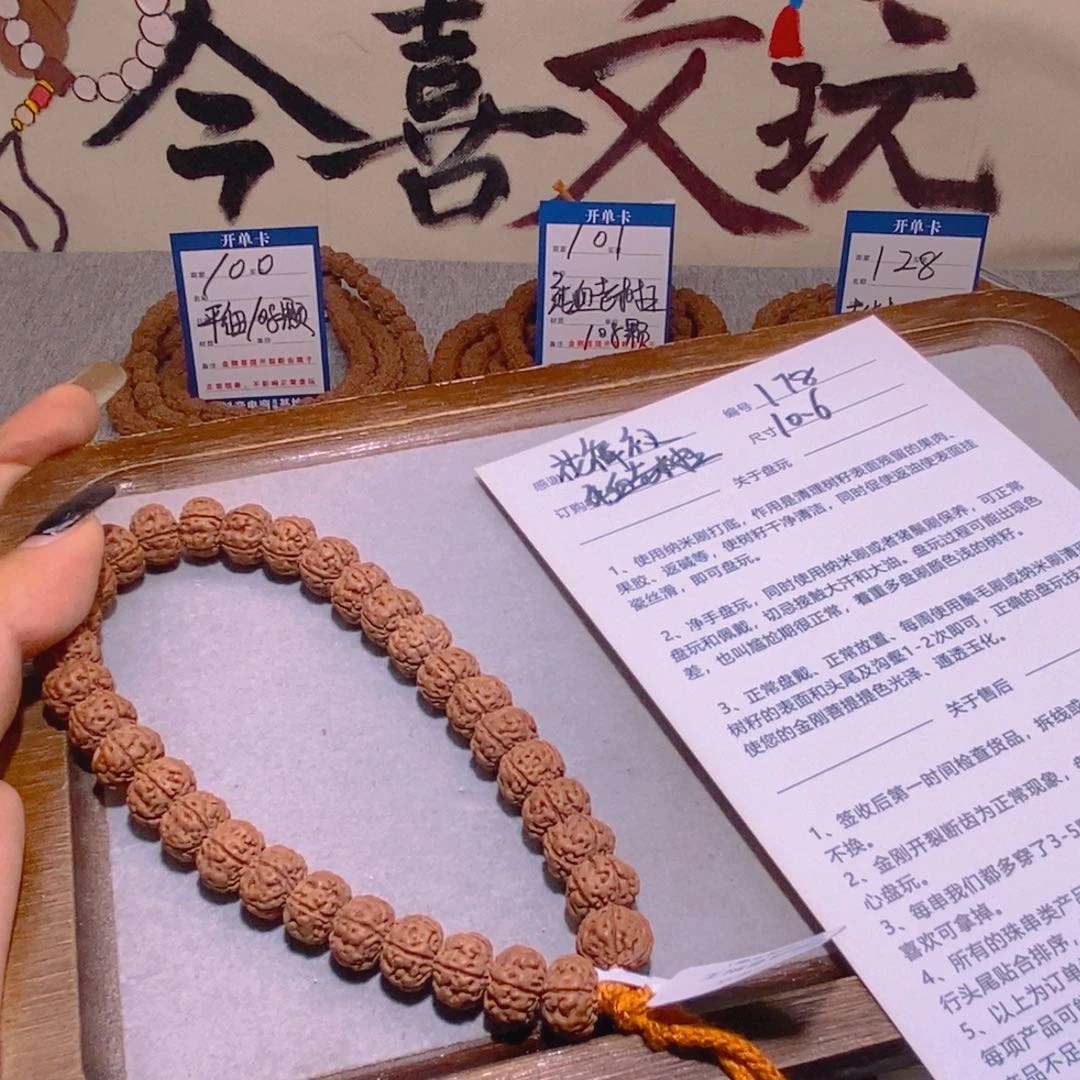 今喜文玩
开单卡
100
平细108颗
金刚菩提开裂断齿属于
正常现象，不影响正常盘玩
开单卡
101
108颗
开单卡
128
编号 178
尺寸 10-6
感谢
订购
关于盘玩
1、使用纳米刷打底，作用是清理树籽表面残留的果肉、
果胶、返碱等，使树籽干净清洁，同时促使返油使表面挂
瓷丝滑，即可盘玩。
2、净手盘玩，同时使用纳米刷或老猪鬃刷保养，可正常
盘玩和佩戴，切忌接触大汗和大油。盘玩过程可能出现色
差，也叫尴尬期很正常，着重多盘刷颜色浅的树籽。
3、正常盘戴、正常放置、每周使用鬃毛刷或纳米刷清理
树籽的表面和头尾及沟壑1-2次即可，正确的盘玩技
使您的金刚菩提提色光泽、通透玉化。
关于售后
1、签收后第一时间检查货品，拆线或
不换。
2、金刚开裂断齿为正常现象，
心盘玩。
3、每串我们都多穿了3-5
喜欢可拿掉。
4、所有的珠串类产
行头尾贴合排序，
5、以上为订单
每项产品可能
产品不足